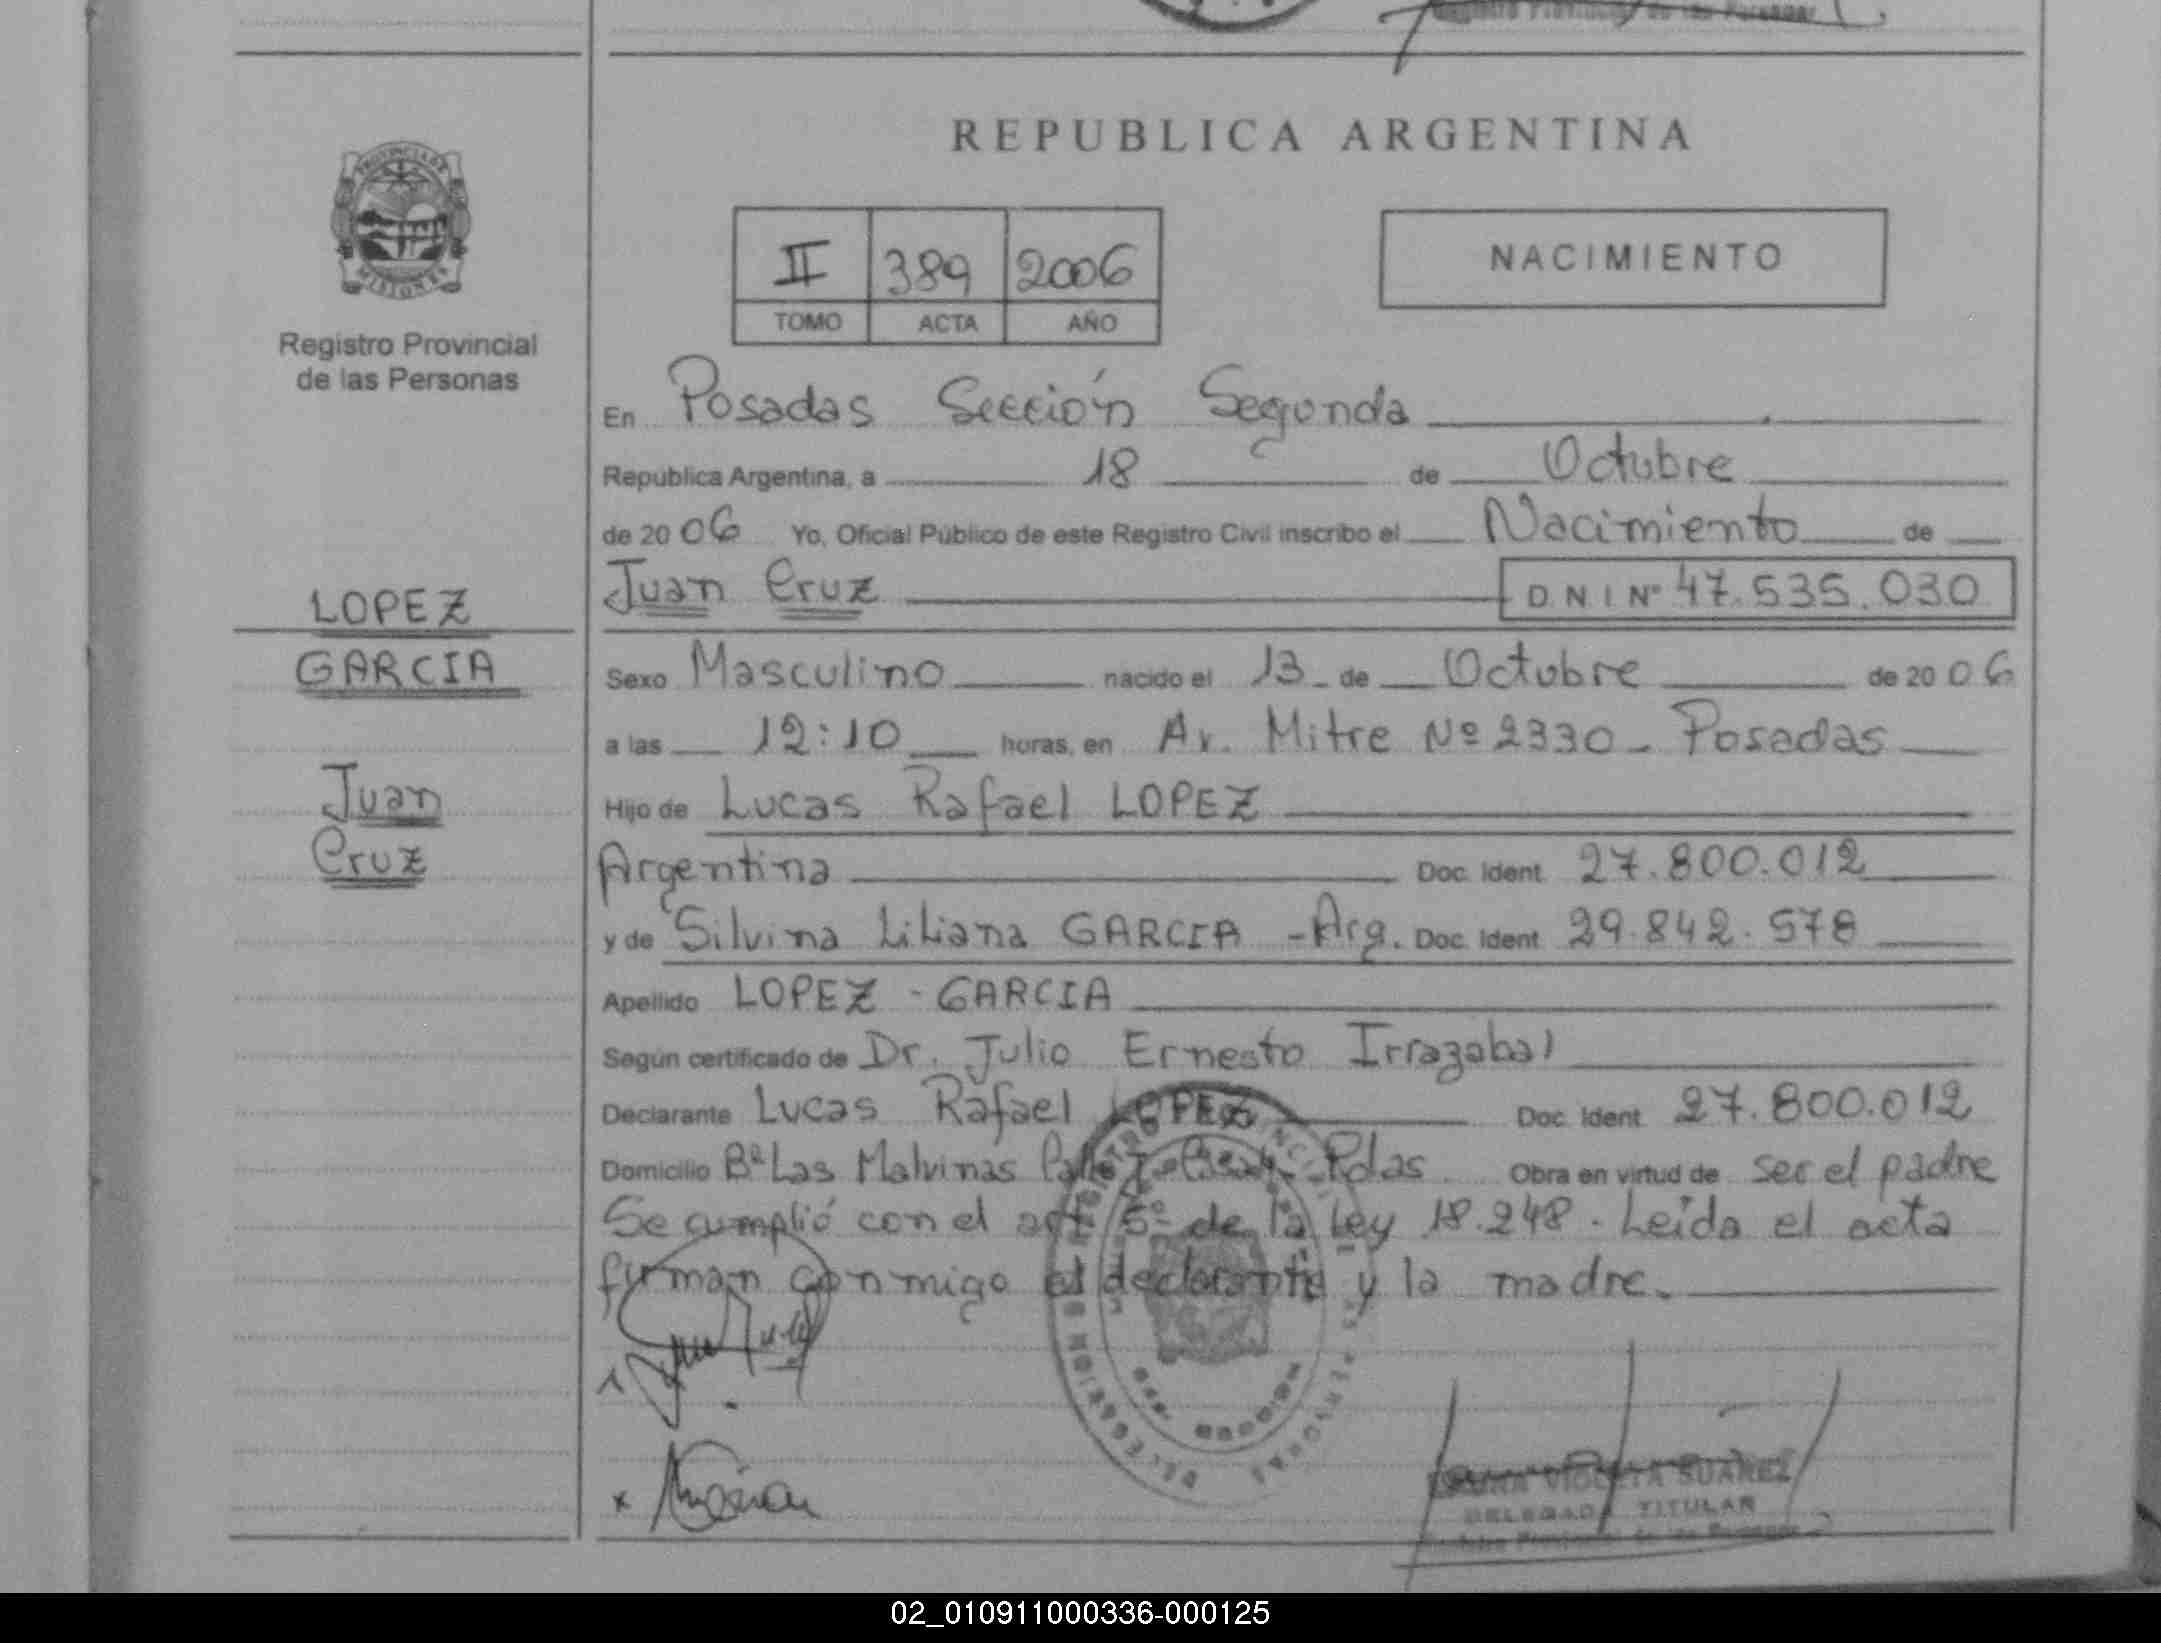 REPUBLICA ARGENTINA
PROVINCIA DE
MISIONES
Registro Provincial
de las Personas
II 389 2006
TOMO ACTA AÑO
NACIMIENTO
En Posadas Sección Segunda
República Argentina, a 18 de Octubre
de 2006 Yo, Oficial Público de este Registro Civil inscribo el Nacimiento de
Juan Cruz DNI Nº 47.535.030
LOPEZ
GARCIA
Juan
Cruz
Sexo Masculino nacido el 13 de Octubre de 2006
a las 12:10 horas, en Av. Mitre Nº 2330 - Posadas
Hijo de Lucas Rafael LOPEZ
Argentina Doc. Ident. 27.800.012
y de Silvina Liliana GARCIA - Arg. Doc. Ident. 29.842.578
Apellido LOPEZ - GARCIA
Según certificado de Dr. Julio Ernesto Irrazabal
Declarante Lucas Rafael LOPEZ Doc. Ident. 27.800.012
Domicilio Bº Las Malvinas Pdas Obra en virtud de ser el padre
Se cumplió con el art 5º de la Ley 18.248. Leída el acta
firman conmigo el declarante y la madre.
VIOLETA SUAREZ
DELEGADA TITULAR
Registro Provincial de las Personas
02_010911000336-000125